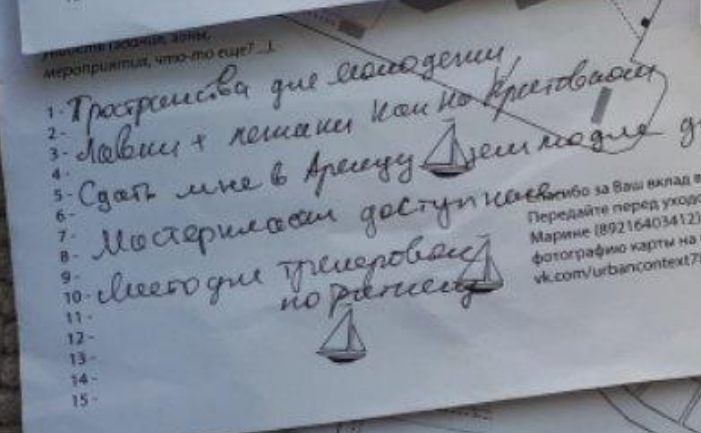 мероприятия, что-то еще? ...).
1- Пространства для молодежи
2-
3- Лавки + лежаки как на Крестовском
4-
5- Сдать мне в Аренду землю для
6-
7-
8- Мастерклассы доступные
9-
10- Место для тренировок
11- по регби
12-
13-
14-
15-
Спасибо за Ваш вклад в
Передайте перед уходо
Марине (89216403412)
фотографию карты на
vk.com/urbancontext7